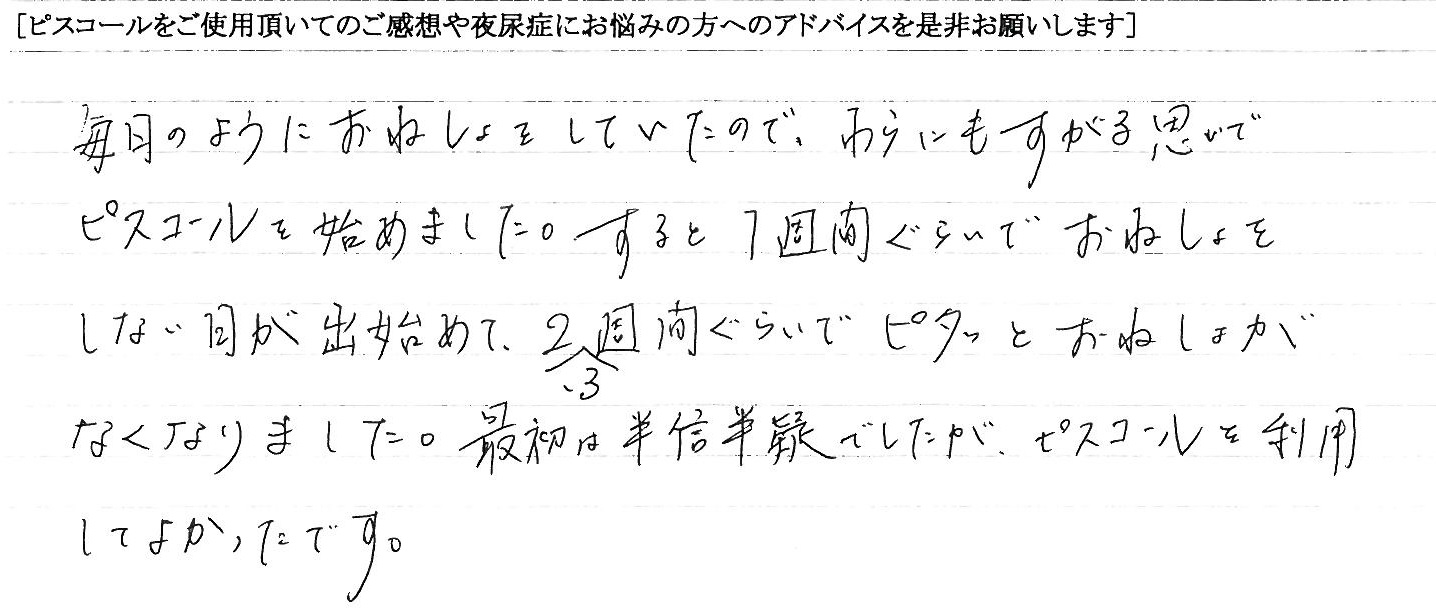 [ピスコールをご使用頂いてのご感想や夜尿症にお悩みの方へのアドバイスを是非お願いします]
毎日のようにおねしょをしていたので、わらにもすがる思いで
ピスコールを始めました。すると1週間ぐらいでおねしょを
しない日が出始めて、2、3週間ぐらいでピタッとおねしょが
なくなりました。最初は半信半疑でしたが、ピスコールを利用
してよかったです。